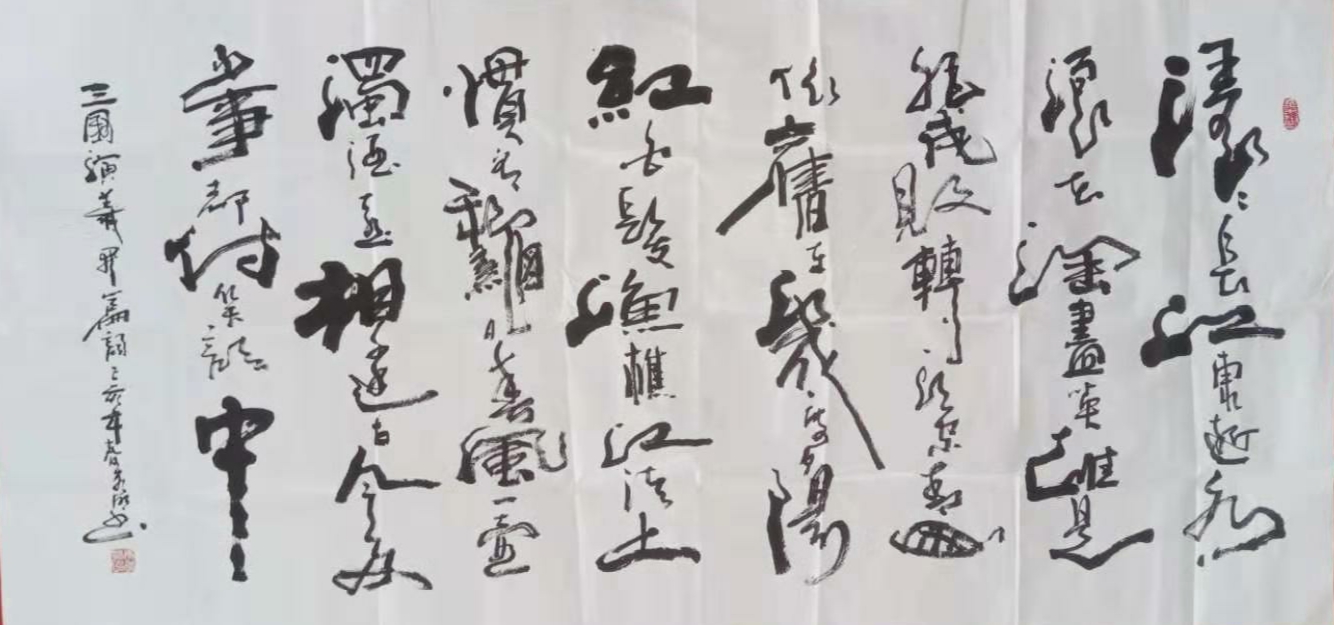 滾〻長江東逝水
浪花淘盡英雄是
非成敗轉頭空青山
依舊在幾度夕陽
紅白髮漁樵江渚上
慣看龝月春風一壺
濁酒喜相逢古今多
少事都付笑談中
三國演義開篇詞己亥年春書